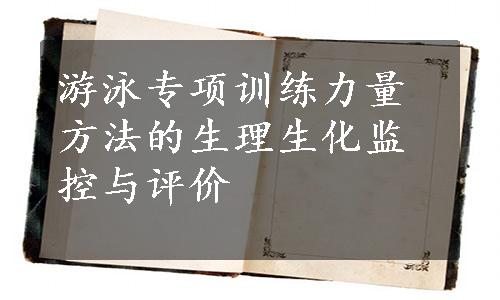 游泳专项训练力量
方法的生理生化监
控与评价